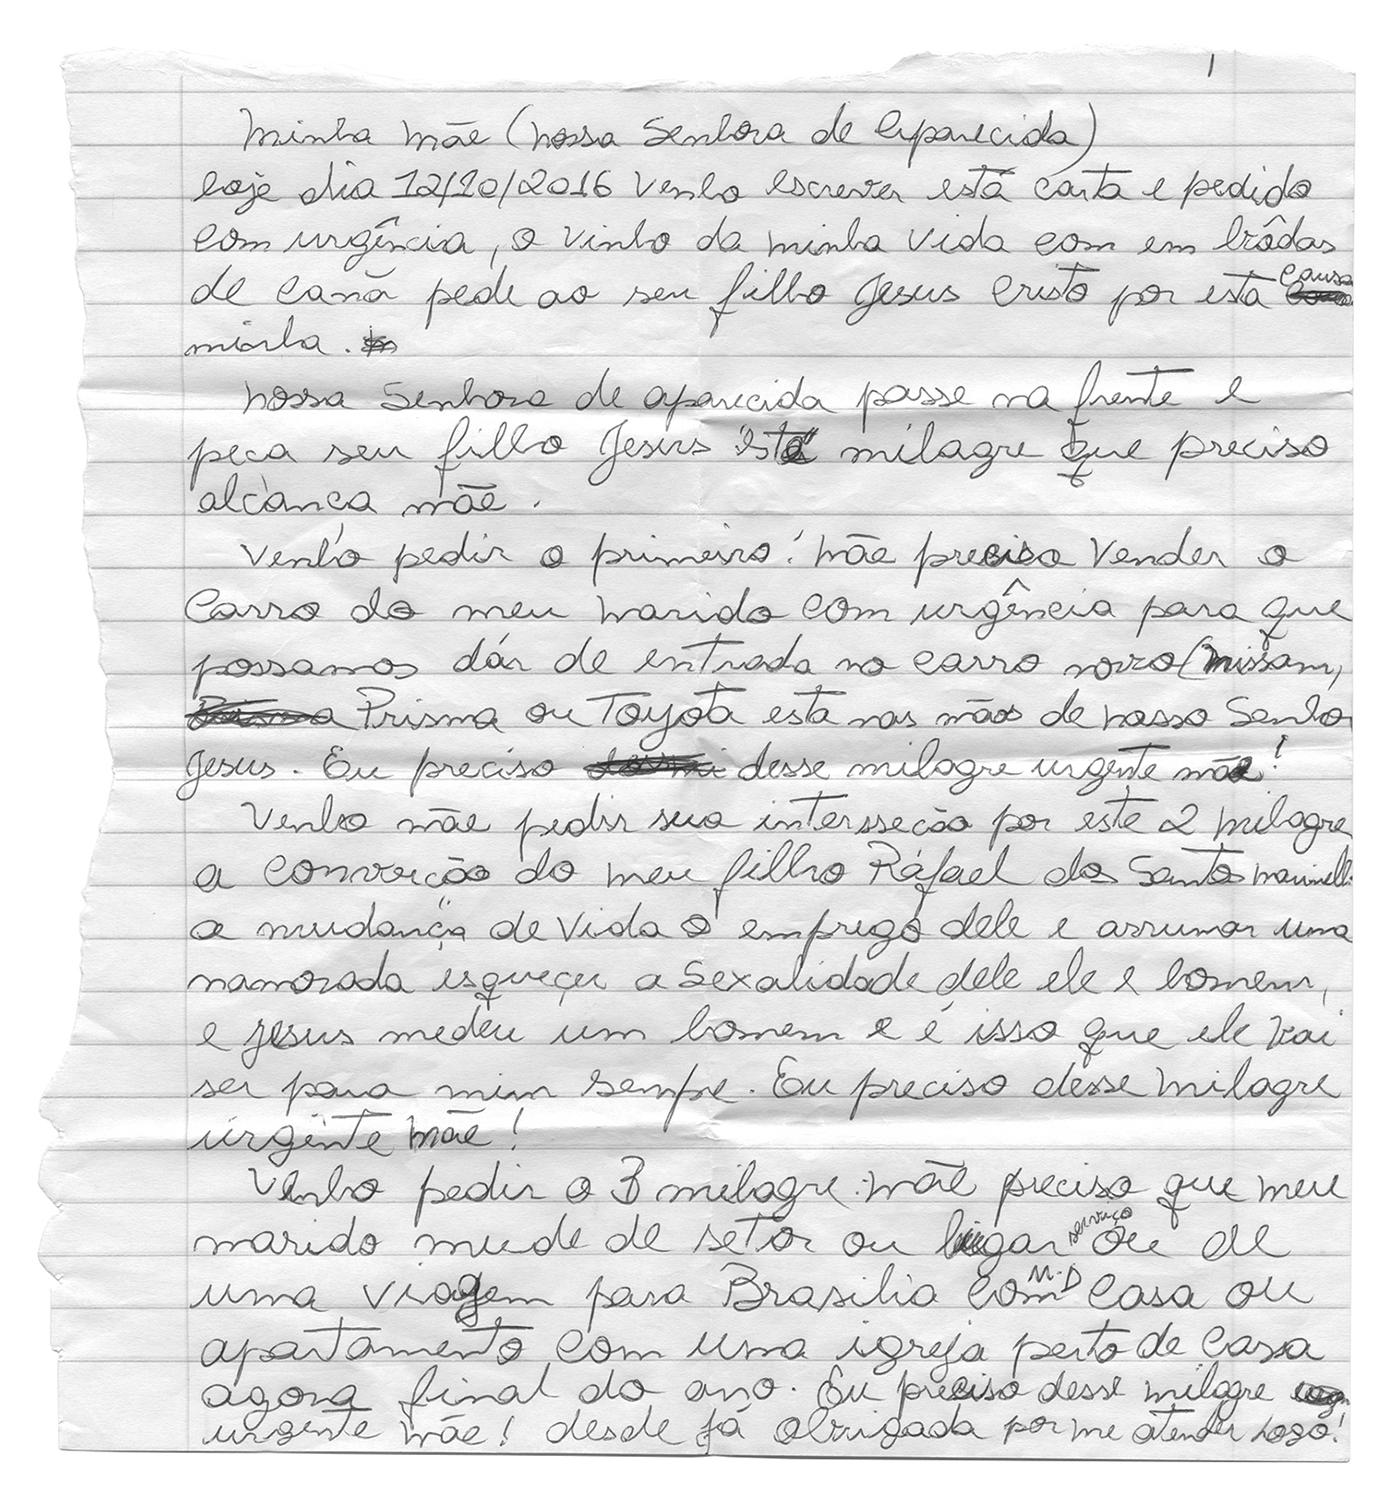 1
Minha Mãe (Nossa Senhora de Aparecida)
hoje dia 12/10/2016 Venho escrever está carta e pedido
com urgência, o vinho da minha vida com em bôdas
de canã pede ao seu filho Jesus Cristo por esta causa
minha.
Nossa Senhora de aparecida passe na frente e
peca seu filho Jesus "este" milagre que preciso
alcança mãe.
Venho pedir o primeiro! Mãe preciso Vender o
Carro do meu Marido com urgência para que
possamos dár de entrada no carro novo (Nissam,
Prisma ou Toyota esta nas mãos de nosso Senho
Jesus. Eu preciso desse milagre urgente mãe!
Venho mãe pedir sua interseção por este 2 milagre
a converção do meu filho Ráfael dos Santos
a mudança de Vida o emprego dele e arrumar uma
namorada esqueçer a Sexalidade dele ele e homem,
e Jesus medeu um homem e é isso que ele vai
ser para mim sempre. Eu preciso desse Milagre
urgente Mãe!
Venho pedir o 3 milagre: Mãe preciso que meu
marido mude de setor ou lugar serviço ou de
uma viagem para Brasilia com M.D casa ou
apartamento com uma igreja perto de casa
agora final do ano. Eu preciso desse milagre
urgente Mãe! desde já obrigada por me atender logo!